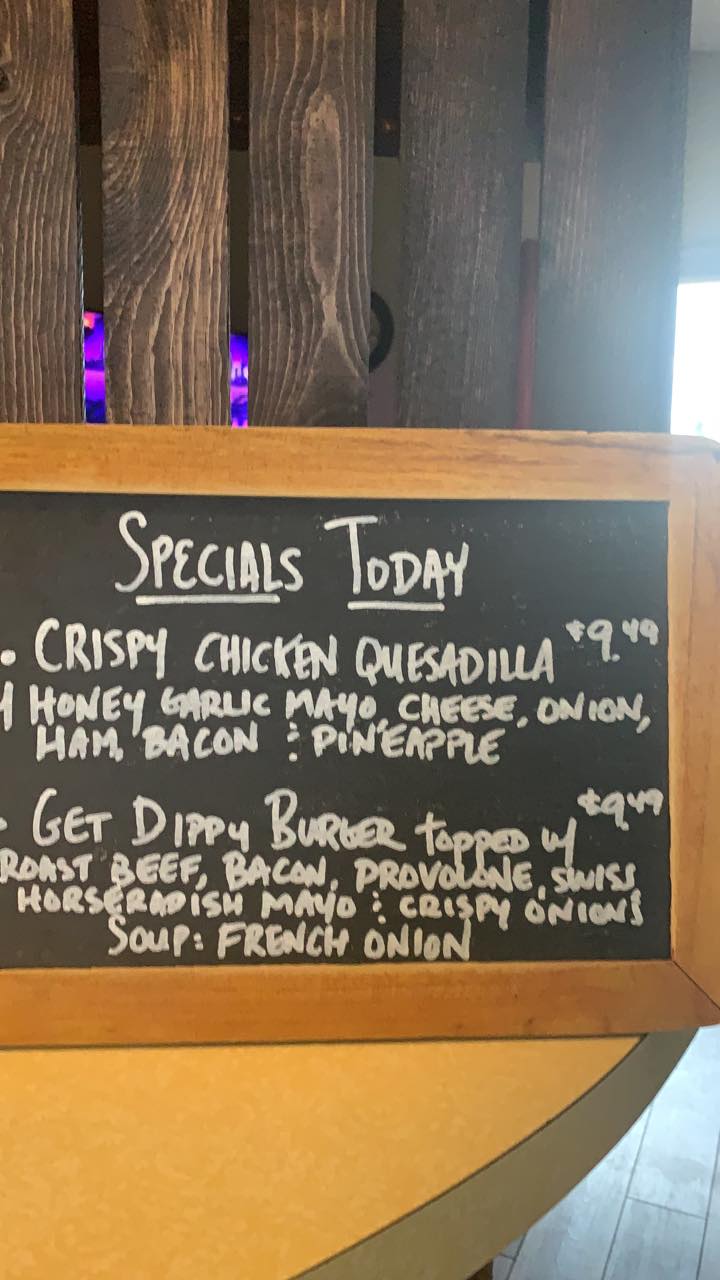 SPECIALS TODAY
• CRISPY CHICKEN QUESADILLA $9.49
HONEY GARLIC MAYO, CHEESE, ONION,
HAM, BACON & PINEAPPLE
- GET DIPPY BURGER TOPPED W/ $9.49
ROAST BEEF, BACON, PROVOLONE, SWISS,
HORSERADISH MAYO & CRISPY ONIONS
SOUP: FRENCH ONION